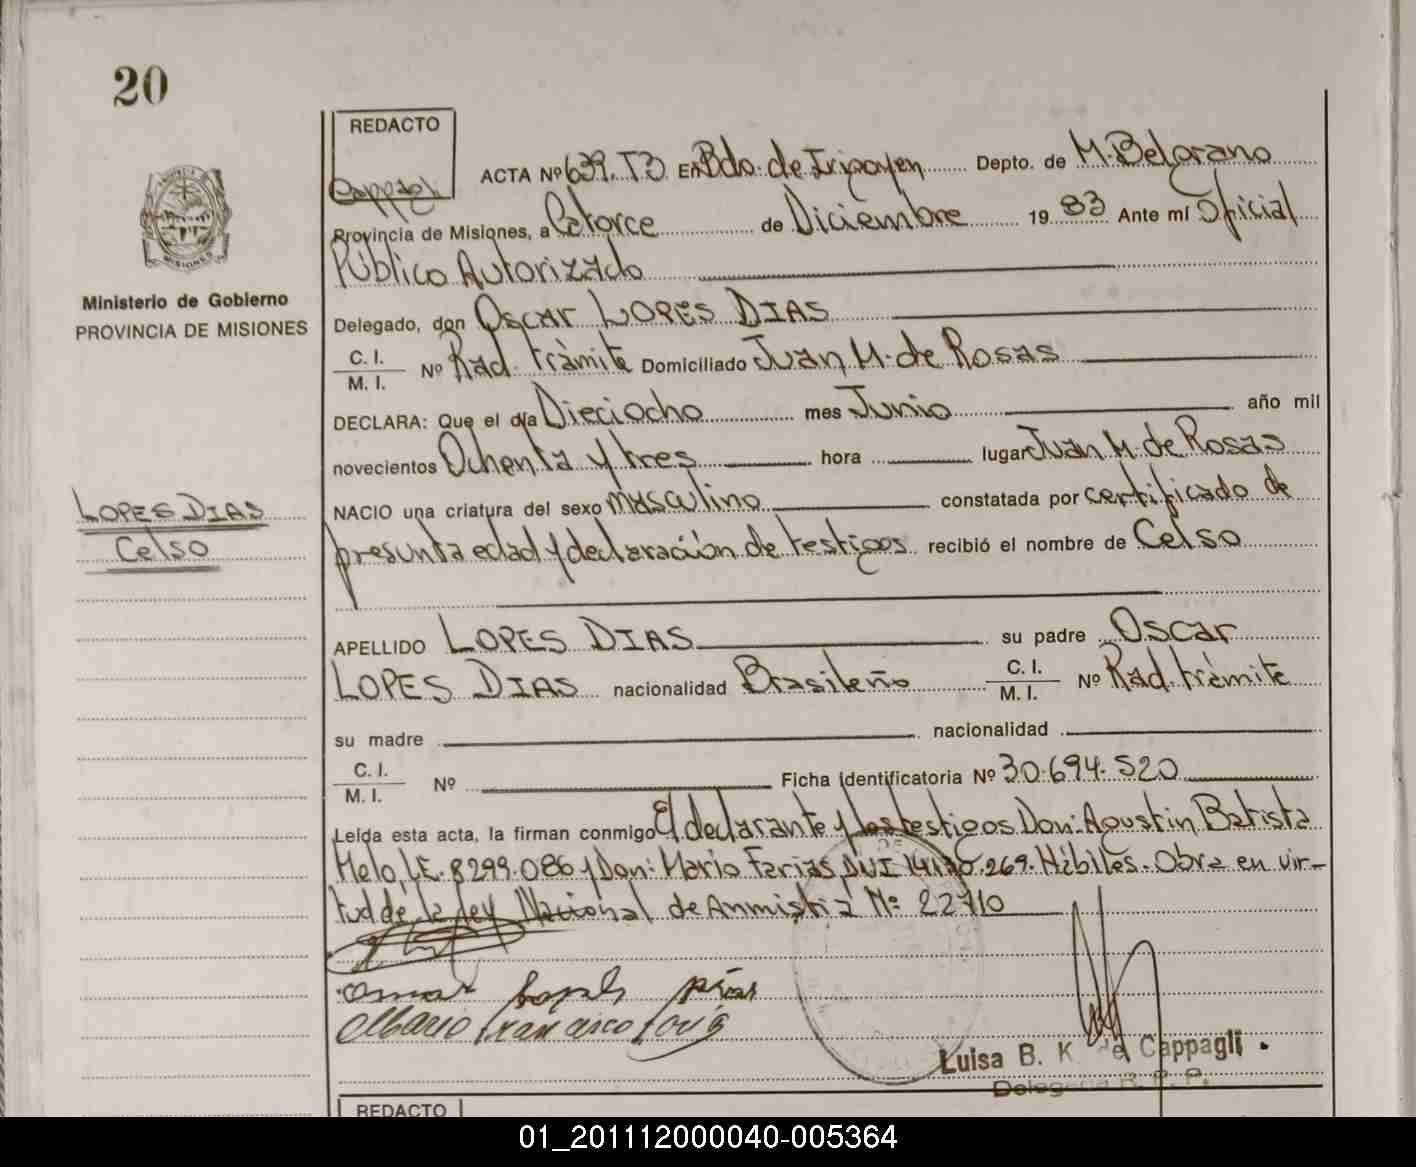 20
REDACTO
Cappagli
ACTA Nº 639. T3 EN Bdo. de Irigoyen Depto. de M. Belgrano
Provincia de Misiones, a Catorce de Diciembre 19 83 Ante mí Oficial
Público Autorizado
Ministerio de Gobierno
PROVINCIA DE MISIONES
Delegado, don Oscar LOPES DIAS
C. I.
M. I.
Nº Rad. tràmite Domiciliado Juan M. de Rosas
DECLARA: Que el día Dieciocho mes Junio año mil
novecientos Ochenta y tres hora lugar Juan M. de Rosas
LOPES DIAS
Celso
NACIO una criatura del sexo masculino constatada por certificado de
presunta edad y declaración de testigos recibió el nombre de Celso
APELLIDO LOPES DIAS su padre Oscar
LOPES DIAS nacionalidad Brasileño C. I.
M. I.
Nº Rad. tràmite
su madre nacionalidad
C. I.
M. I.
Nº Ficha Identificatoria Nº 30.694.520
Leída esta acta, la firman conmigo El declarante y los testigos Don: Agustin Batista
Melo, LE. 8299.086 y Don: Mario Farias DNI 269. Hábiles. Obra en vir-
tud de la Ley Nacional de Anmistia Nº 22710
Luisa B. K de Cappagli
Delegada R. P. P.
REDACTO
01_201112000040-005364